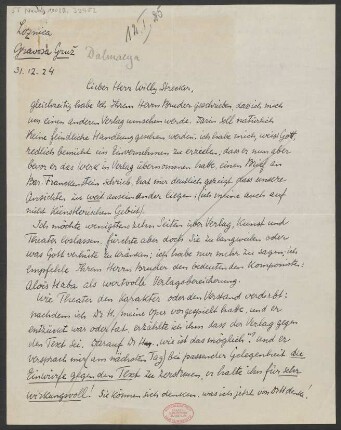 Loznica
Gravosa Gruž
Dalmazia
12.I.25
31.12.24
Lieber Herr Willy Strecker,
gleichzeitig habe ich Ihrem Herrn Bruder geschrieben das ich mich
um einen anderen Verlag umsehen werde. Darin soll natürlich
keine feindliche Handlung gesehen werden. Ich habe mich, weiss Gott
redlich bemüht ein Einvernehmen zu erzielen, dass er nun aber
bevor er das Werk in Verlag übernommen habe, einen Brief an
Bar. Franckenstein schrieb, hat mir deutlich gezeigt dass unsere
Ansichten zu weit auseinander liegen. (Ich meine auch auf
nicht künstlerischem Gebiet).
Ich möchte wenigstens zehn Seiten über Verlag, Kunst und
Theater loslassen, fürchte aber doch Sie zu langweilen oder
was Gott verhüte zu kränken; ich habe nur mehr zu sagen, ich
empfehle Ihrem Herrn Bruder den bedeutenden Komponisten:
Alois Haba als wertvolle Verlagsbereicherung.
Wie Theater den Charakter oder den Verstand verdirbt:
nachdem ich Dr H. meine Oper vorgespielt habe, und er
entzückt war oder tat, erzählte ich ihm dass der Verlag gegen
den Text sei. Darauf Dr H: „wie ist das möglich“? und er
versprach mir (am nächsten Tag) bei passender Gelegenheit die
Einwürfe gegen den Text zu zerstreuen, er halte ihn für sehr
wirkungsvoll! Sie können sich denken, was ich jetzt von Dr H denke!